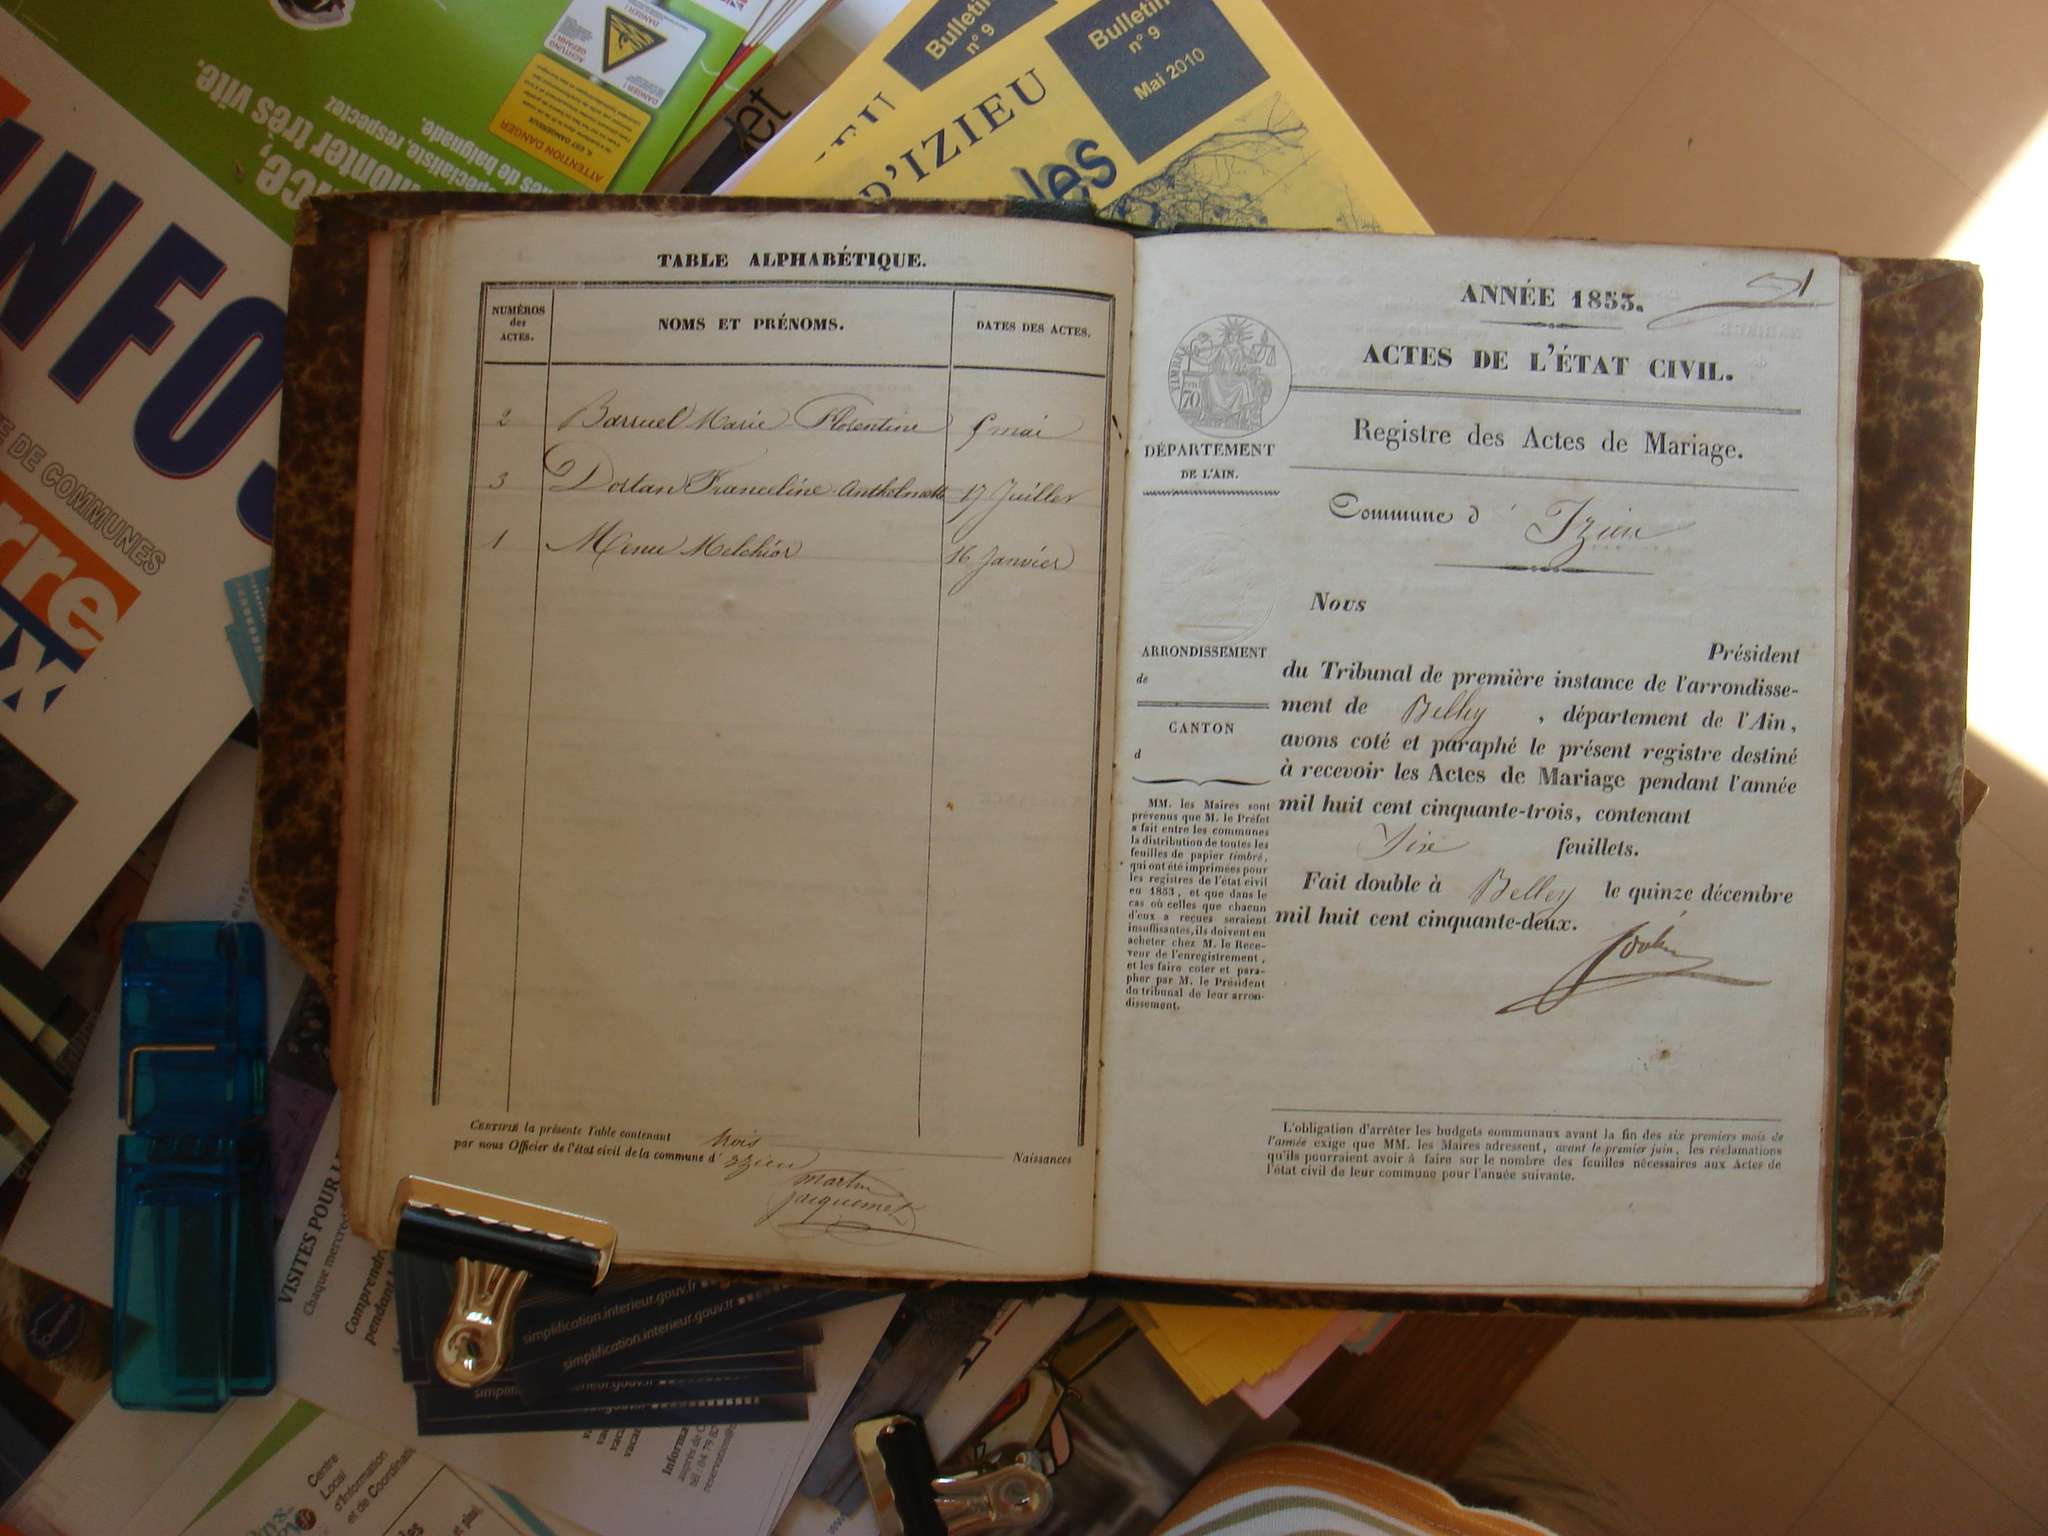 TABLE ALPHABÉTIQUE.
NUMÉROS
des
ACTES.
NOMS ET PRÉNOMS.
DATES DES ACTES.
2 Barruel Marie Florentine 5 mai
3 Dortan Franceline Anthelmette 17 Juillet
1 Menu Melchior 16 Janvier
CERTIFIÉ la présente Table contenant trois Naissances
par nous Officier de l'état civil de la commune d'Izieu
martin
jacquemet
ANNÉE 1853.
ACTES DE L'ÉTAT CIVIL.
TIMBRE
70
Registre des Actes de Mariage.
DÉPARTEMENT
DE L'AIN.
Commune d'Izieu
ARRONDISSEMENT
de
CANTON
d
MM. les Maires sont
prévenus que M. le Préfet
a fait entre les communes
la distribution de toutes les
feuilles de papier timbré,
qui ont été imprimées pour
les registres de l'état civil
en 1853, et que dans le
cas où celles que chacun
d'eux a reçues seraient
insuffisantes, ils doivent en
acheter chez M. le Rece-
veur de l'enregistrement,
et les faire coter et para-
pher par M. le Président
du tribunal de leur arron-
dissement.
Nous
Président
du Tribunal de première instance de l'arrondisse-
ment de Belley , département de l'Ain,
avons coté et paraphé le présent registre destiné
à recevoir les Actes de Mariage pendant l'année
mil huit cent cinquante-trois, contenant
Six feuillets.
Fait double à Belley le quinze décembre
mil huit cent cinquante-deux.
L'obligation d'arrêter les budgets communaux avant la fin des six premiers mois de
l'année exige que MM. les Maires adressent, avant le premier juin, les réclamations
qu'ils pourraient avoir à faire sur le nombre des feuilles nécessaires aux Actes de
l'état civil de leur commune pour l'année suivante.
Bulletin
n° 9
Bulletin
n° 9
Mai 2010
D'IZIEU
les
INFOS
E DE COMMUNES
monter très vite.
respectez
de baignade.
ATTENTION DANGER
DANGER !
ACHTUNG
GEFAHR !
VISITES POUR
Chaque mercredi
Comprendre
pendant
simplification.interieur.gouv.fr
simplification.interieur.gouv.fr
Centre
Local
d'Information
et de Coordination